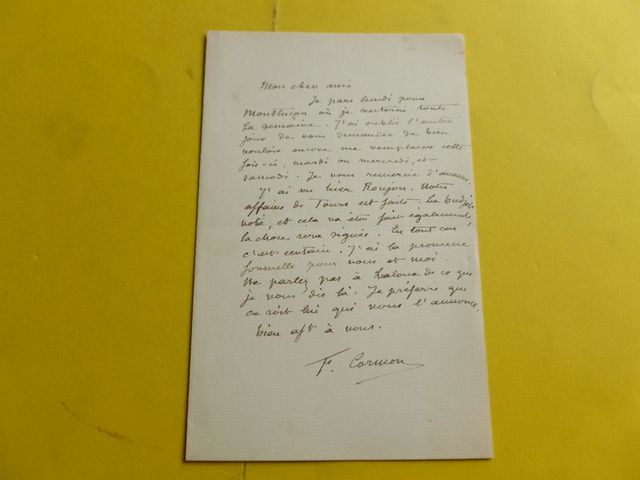 Mon cher ami
Je pars lundi pour
Montluçon où je resterai toute
la semaine. J'ai oublié l'autre
jour de vous demander de bien
vouloir encore me remplacer cette
fois-ci, mardi ou mercredi, et
samedi. Je vous remercie d'avance,
J'ai vu hier Roujon. Notre
affaire de Tours est faite. Le budget
voté, et cela va être fait également,
la chose sera signée. En tout cas
c'est certain. J'ai la promesse
formelle pour vous et moi.
Ne parlez pas à Laloux de ce que
je vous dis là. Je préfère que
ce soit lui qui vous l'annonce,
bien aft à vous.
F. Cormon